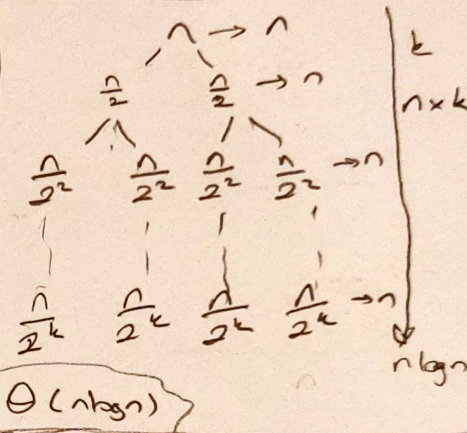 n → n
n/2 n/2 → n
n/2² n/2² n/2² n/2² → n
n/2ᵏ n/2ᵏ n/2ᵏ n/2ᵏ → n
k
n×k
nlogn
Θ(nlogn)